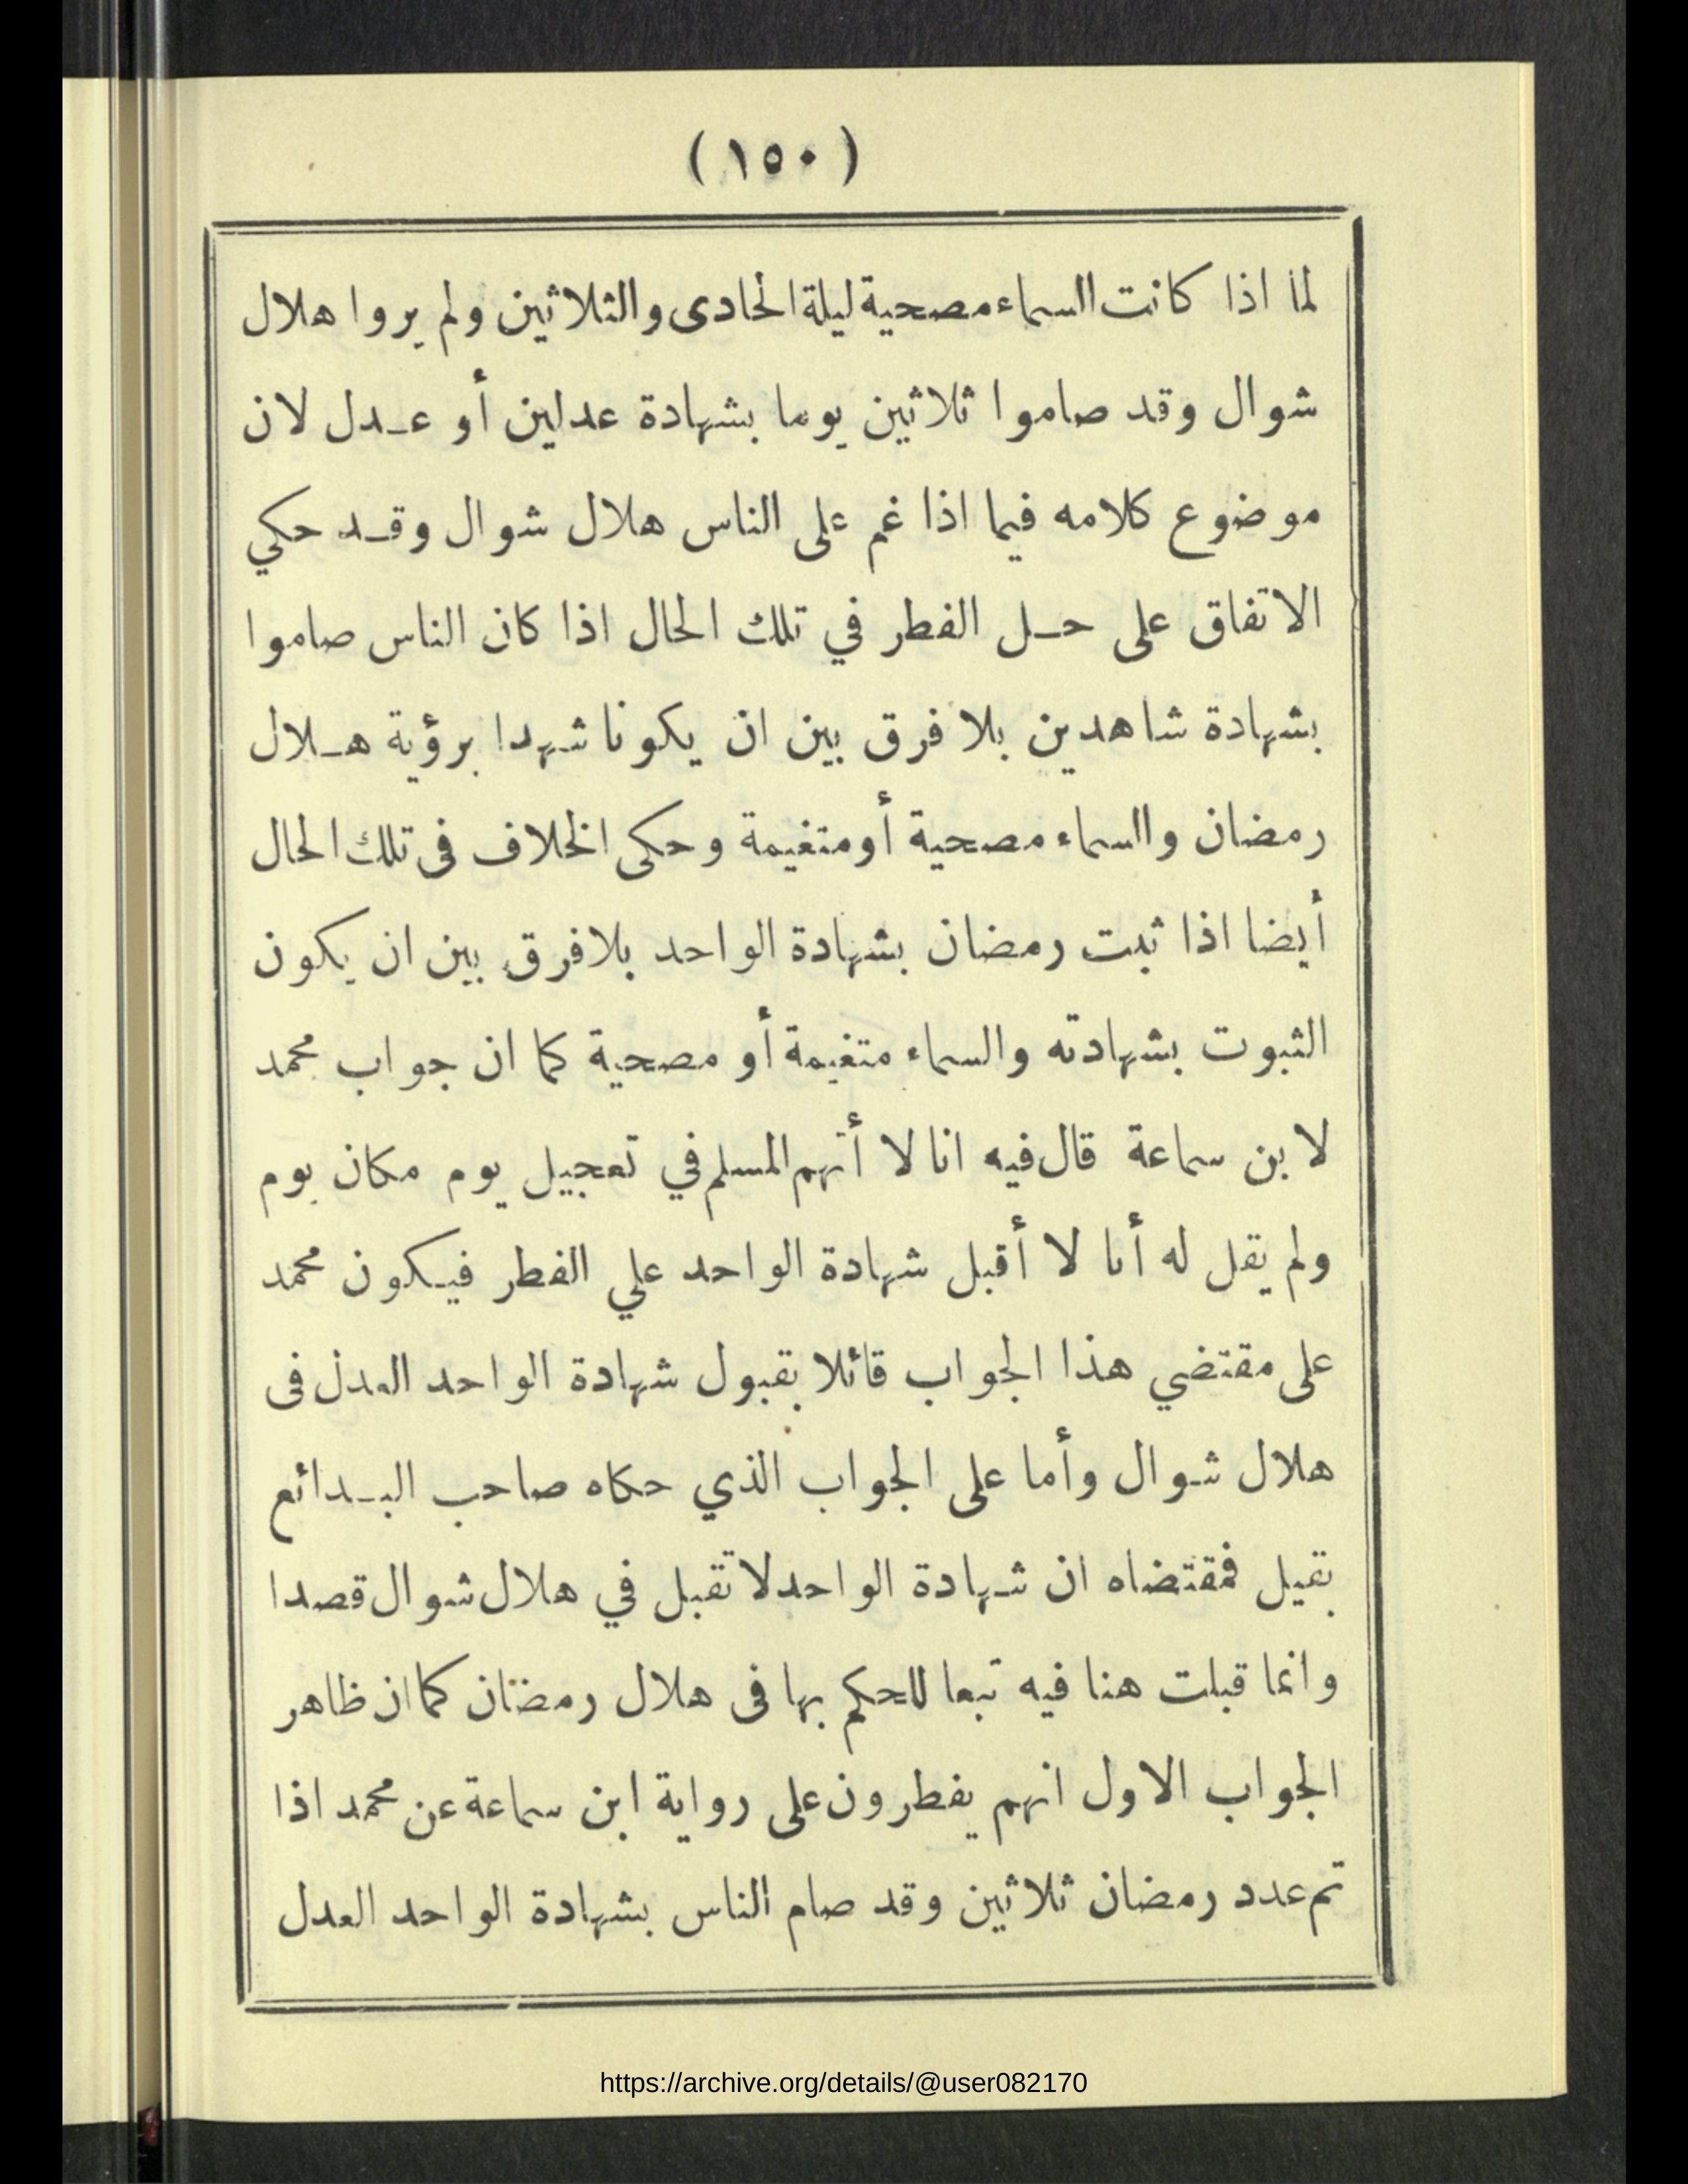 (١٥٠)
لما اذا كانت السماء مصحية ليلة الحادى والثلاثين ولم يروا هلال
شوال وقد صاموا ثلاثين يوما بشهادة عدلين أو عدل لان
موضوع كلامه فيما اذا غم على الناس هلال شوال وقد حكي
الاتفاق على حل الفطر في تلك الحال اذا كان الناس صاموا
بشهادة شاهدين بلا فرق بين ان يكونا شهدا برؤية هلال
رمضان والسماء مصحية أو متغيمة وحكى الخلاف فى تلك الحال
أيضا اذا ثبت رمضان بشهادة الواحد بلا فرق بين ان يكون
الثبوت بشهادته والسماء متغيمة أو مصحية كما ان جواب محمد
لابن سماعة قال فيه انا لا أتهم المسلم في تعجيل يوم مكان يوم
ولم يقل له أنا لا أقبل شهادة الواحد علي الفطر فيكون محمد
على مقتضي هذا الجواب قائلا بقبول شهادة الواحد العدل فى
هلال شوال وأما على الجواب الذي حكاه صاحب البدائع
بقيل فمقتضاه ان شهادة الواحد لا تقبل في هلال شوال قصدا
وانما قبلت هنا فيه تبعا للحكم بها فى هلال رمضان كما ان ظاهر
الجواب الاول انهم يفطرون على رواية ابن سماعة عن محمد اذا
تم عدد رمضان ثلاثين وقد صام الناس بشهادة الواحد العدل
https://archive.org/details/@user082170